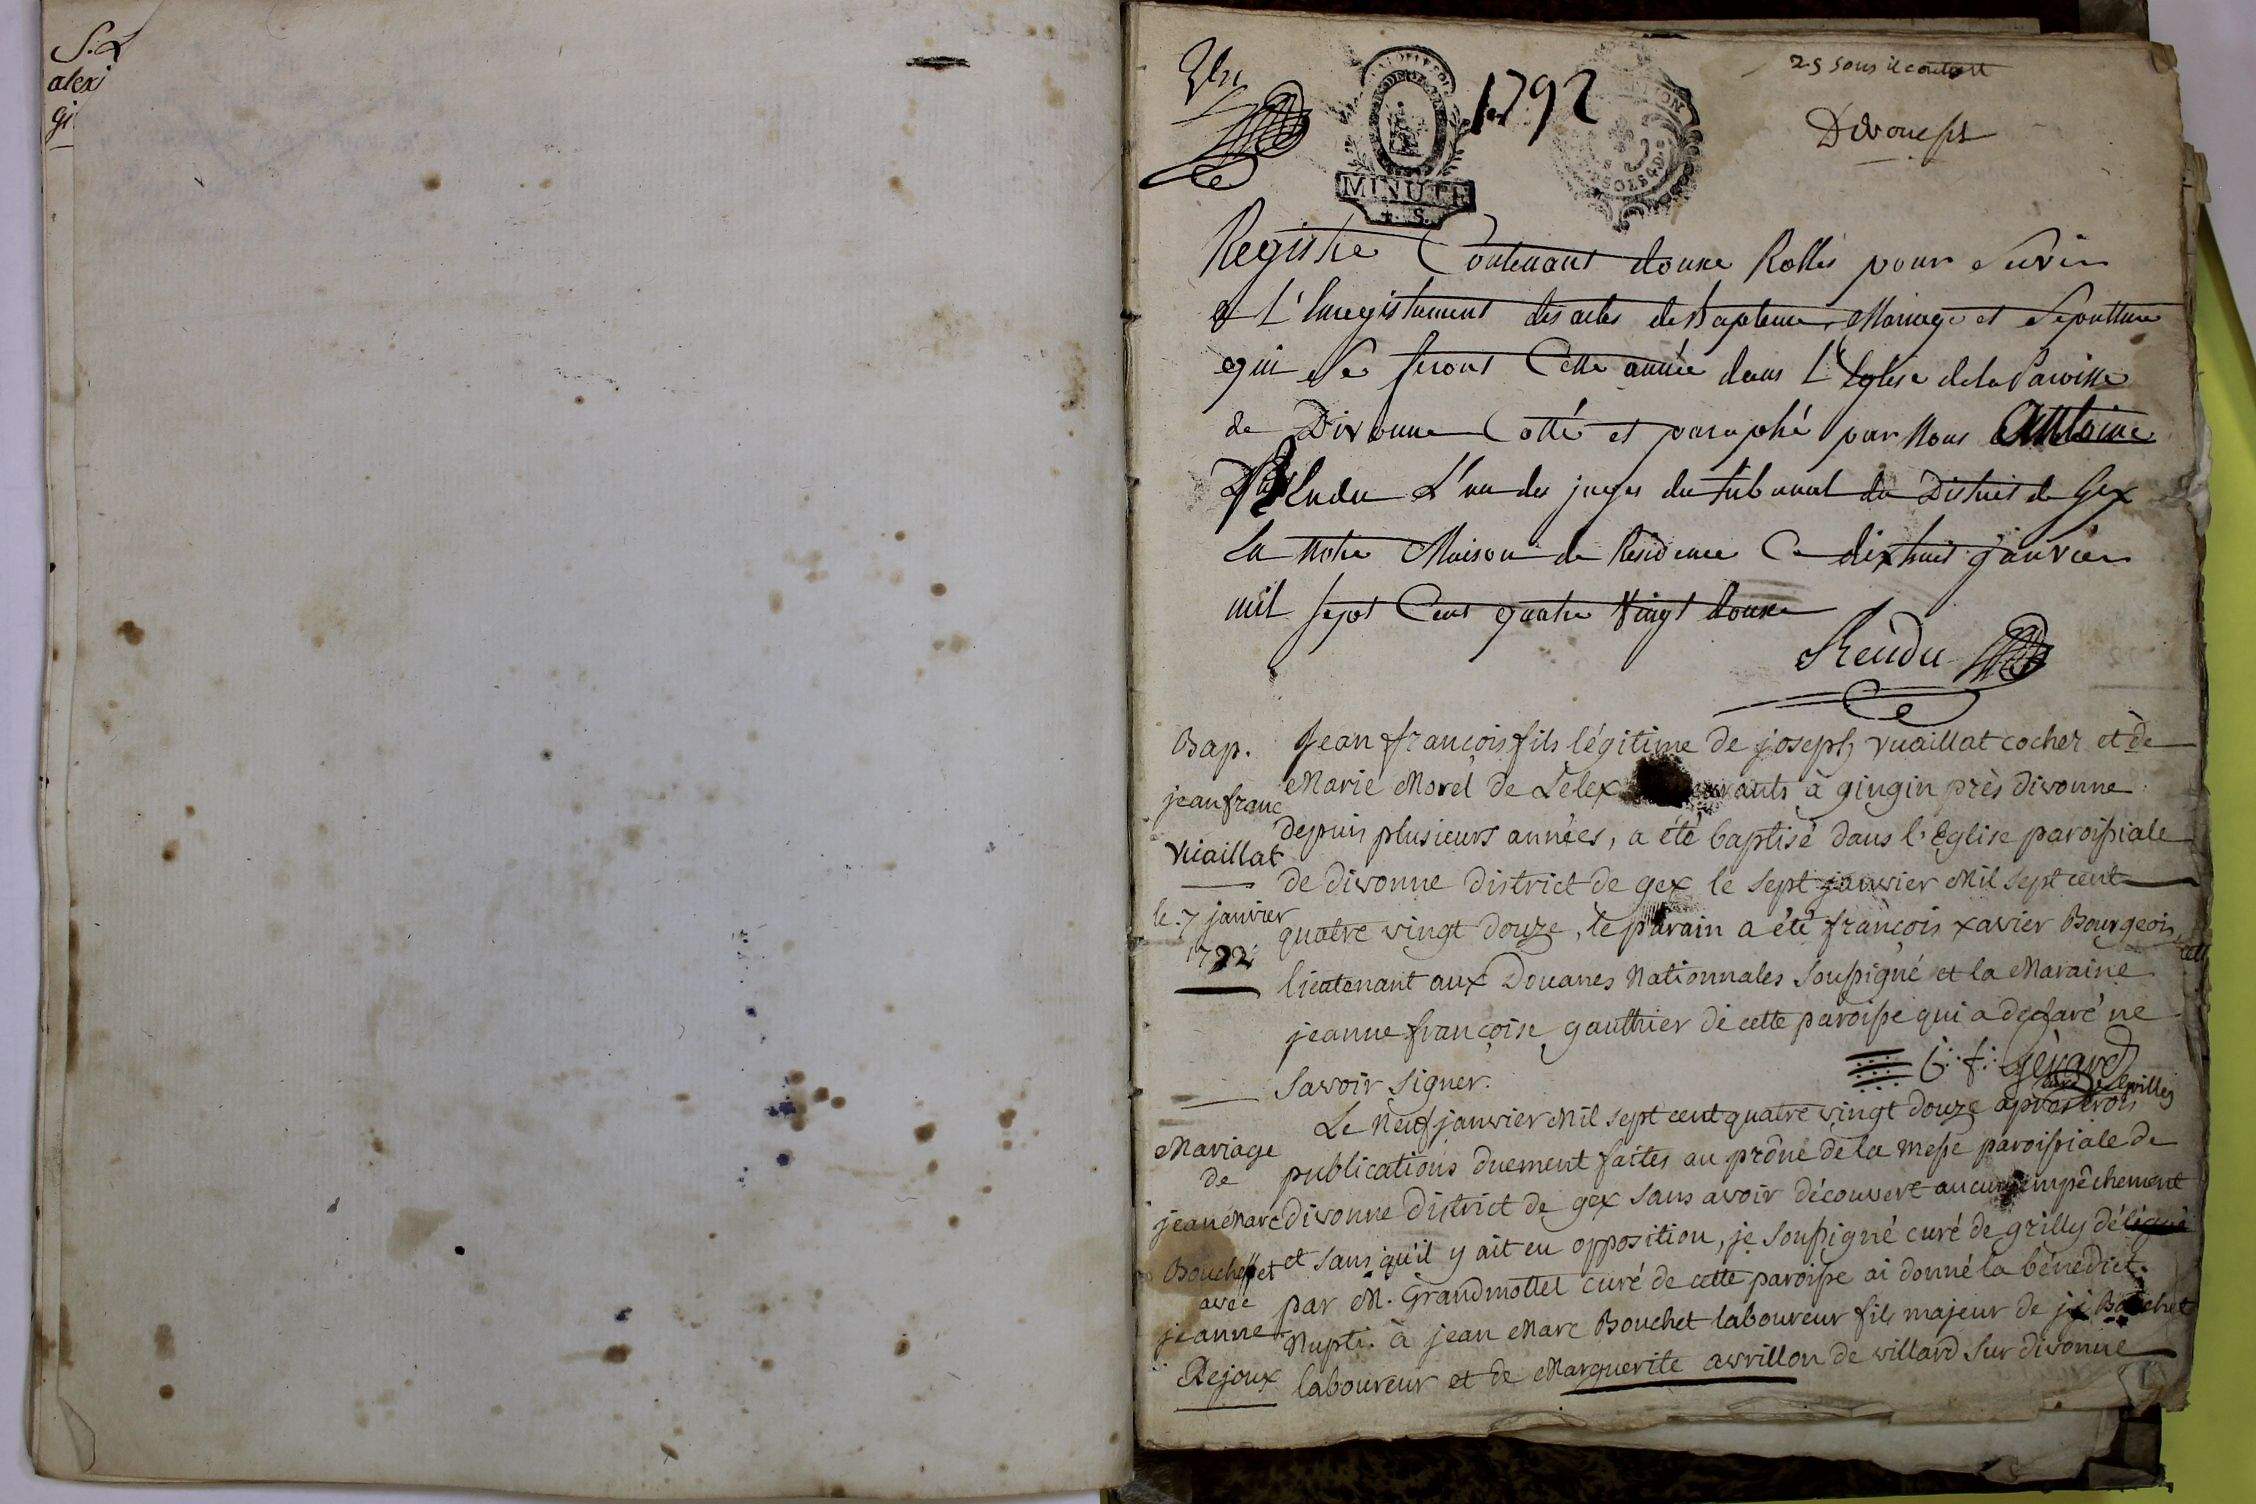 S.
alexi
gi
Un
1792
MINUTE
4 S.
25 sous il
Divonne
Registre Contenant douze Rolles pour Servir
a L'Enregistrement des actes de Bapteme, Mariage et Sepultture
qui Se feront Cette année dans L'Eglise de la Paroisse
de Divonne Cotté et paraphé par Nous Antoine
Rendu L'un des juges du tribunal du District de Gex
En Notre Maison de Residence Ce dix huit janvier
mil sept Cent quatre Vingt douze
Rendu
Bap.
jean franc
Vuaillat
le 7 janvier
1792
jean françois fils légitime de joseph vuaillat cocher et de
Marie Morel de Lélex à gingin près divonne
depuis plusieurs années, a été baptisé dans l'Eglise paroissiale
de divonne district de gex le sept janvier Mil sept cent
quatre vingt douze, le parain a été françois xavier Bourgeois
lieutenant aux Douanes Nationnales soussigné et la Maraine
jeanne françoise gauthier de cette paroisse qui a declaré ne
savoir signer.
G. f. gérard
curé de grilly
Mariage
de
jean Marc
Bouchet
avec
jeanne
Rejoux
Le Neuf janvier Mil sept cent quatre vingt douze après trois
publications duement faites au prône de la messe paroissiale de
divonne district de gex sans avoir découvert aucun empêchement
et sans qu'il y ait eu opposition, je soussigné curé de grilly délégué
par M. Grandmottet curé de cette paroisse ai donné la bénédict.
Nupti. à jean Marc Bouchet laboureur fils majeur de Bouchet
laboureur et de Marguerite avrillon de villard sur divonne